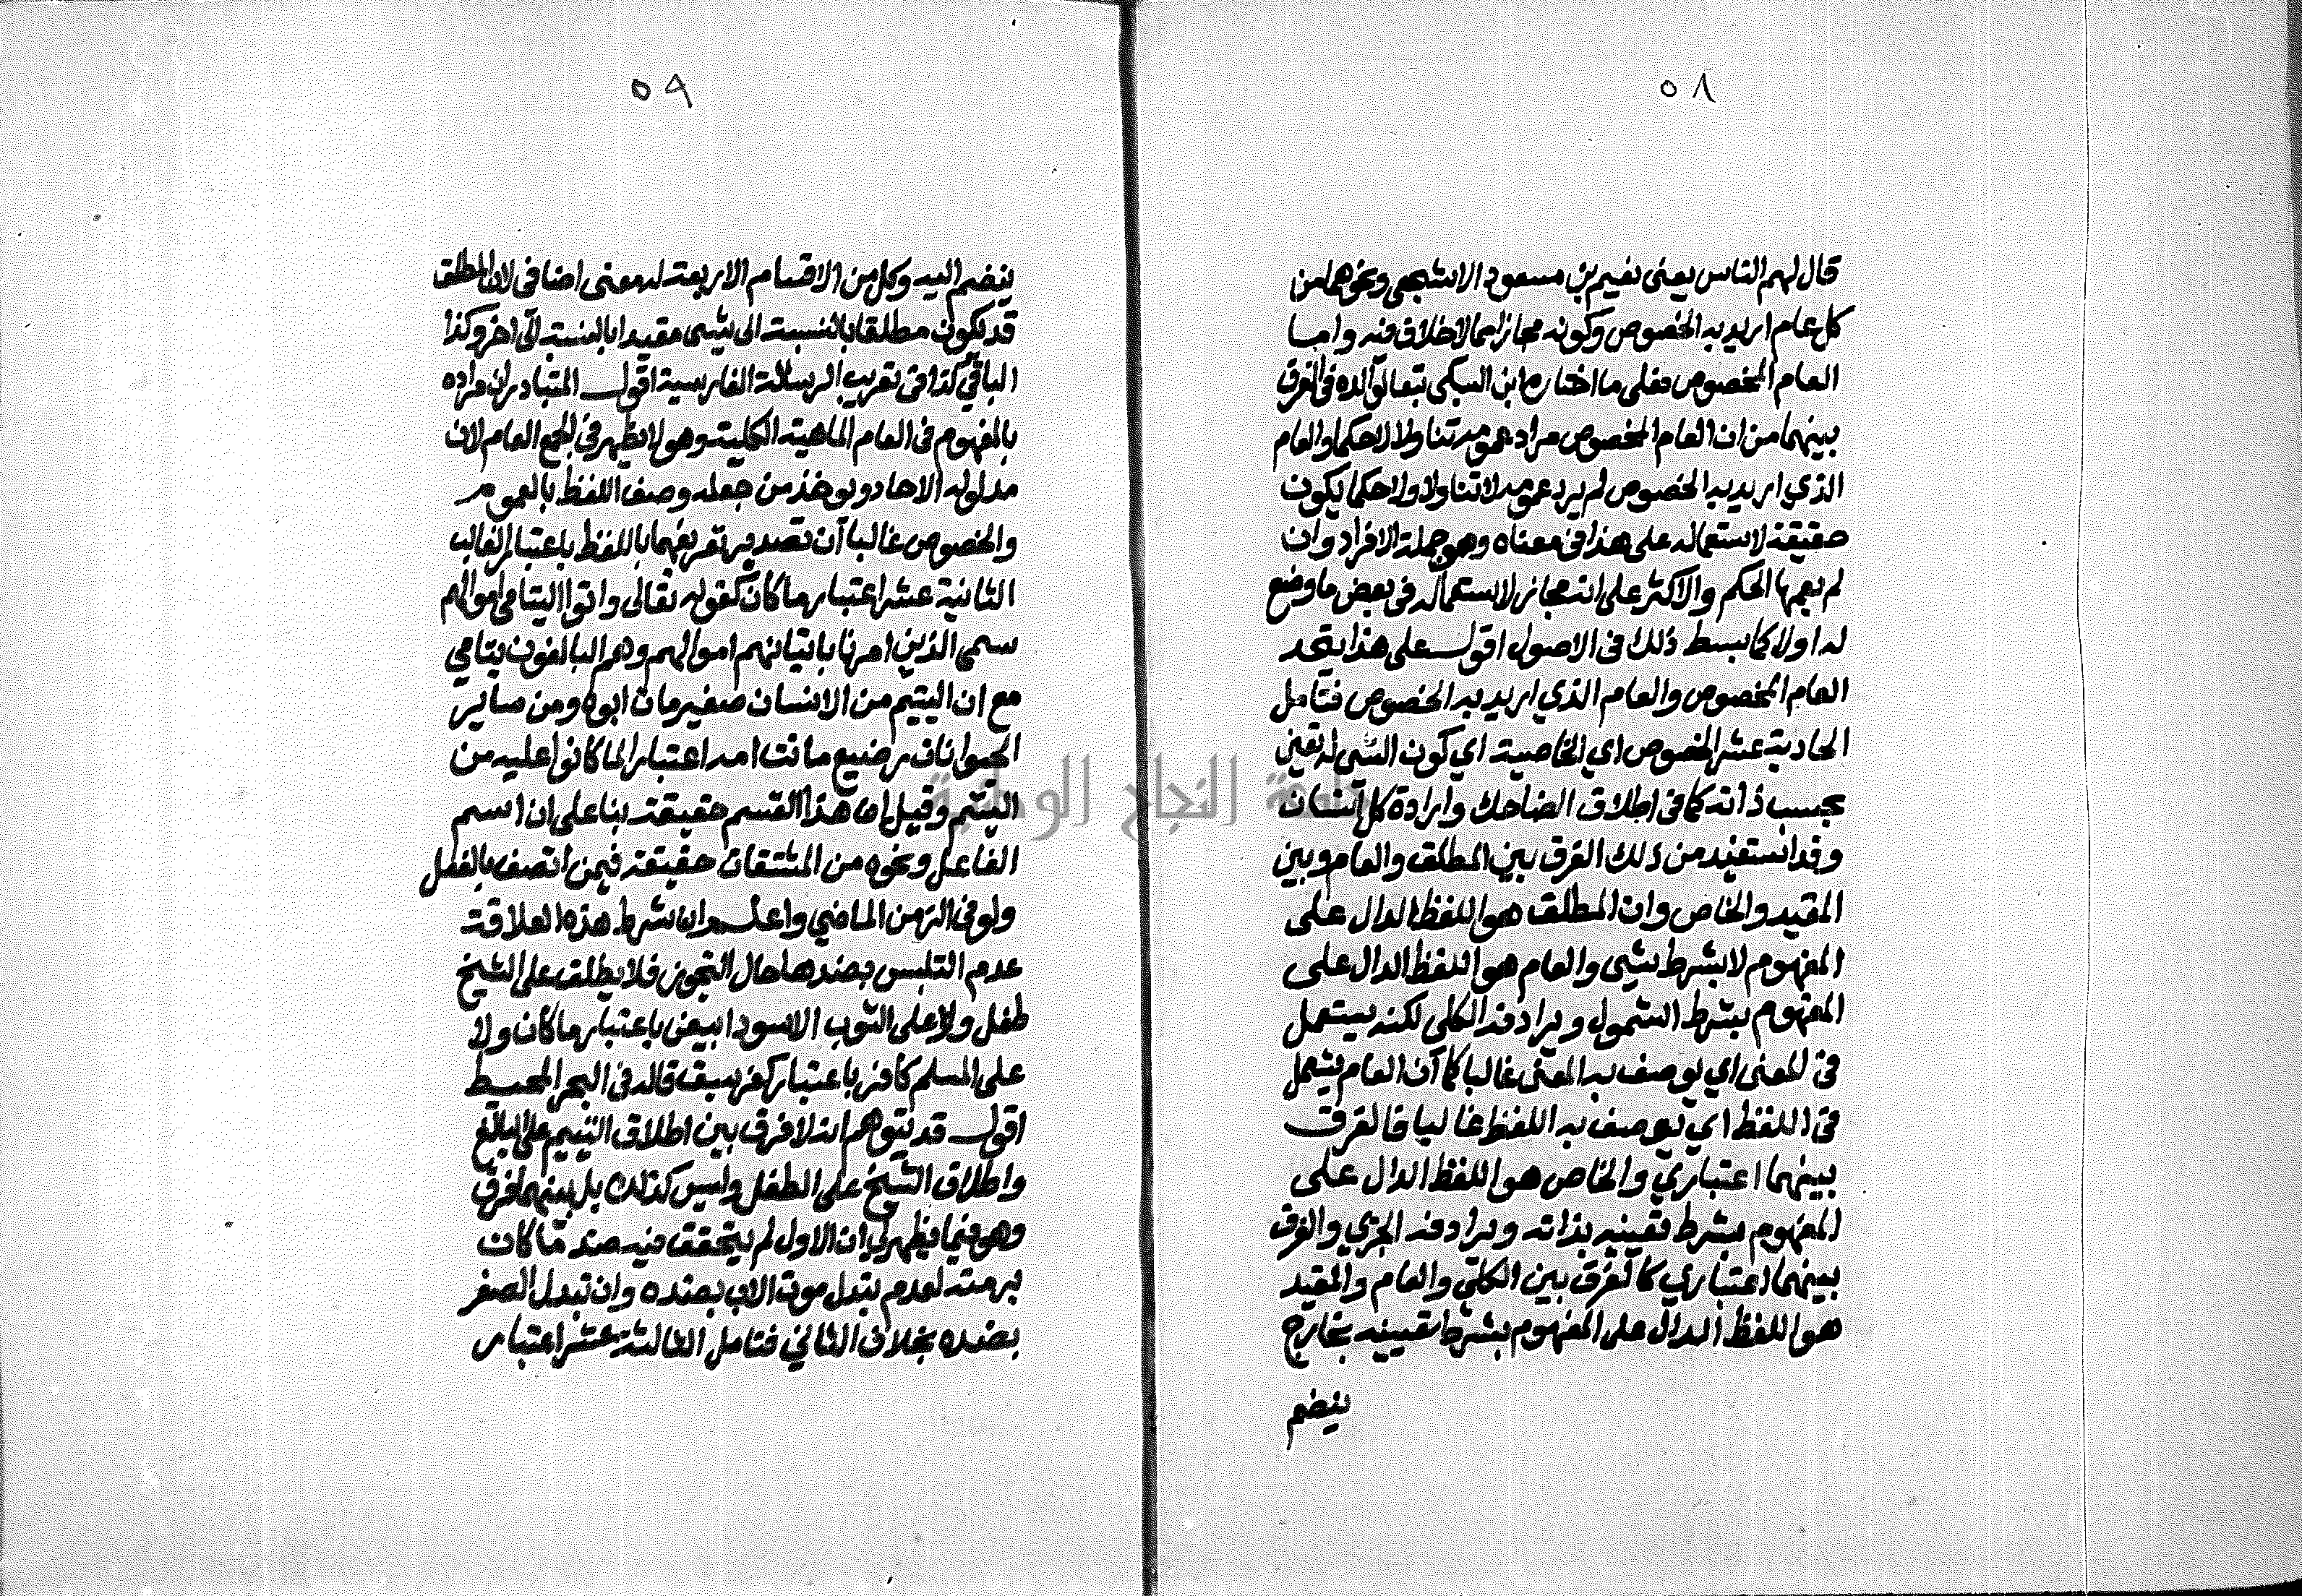 ٥٨
قال لهم الناس يعنى نعيم بن مسعود الاشجعى ونحوهما من
كل عام اريد به الخصوص وكونه مجازا مما لاخلاف فيه واما
العام المخصوص فعلى ما اختاره ابن السبكى تبعا لوالده فى الفرق
بينهما من ان العام المخصوص مراد عمومه تناولا لا حكما والعام
الذي اريد به الخصوص لم يرد عمومه لا تناولا ولا حكما يكون
حقيقة لاستعماله على هذا فى معناه وهو جملة الافراد وان
لم يعمها الحكم والاكثر على انه مجاز لاستعماله فى بعض ما وضع
له اولا كما بسط ذلك فى الاصول اقول على هذا يتحد
العام المخصوص والعام الذي اريد به الخصوص فتامل
الحادية عشر الخصوص اي الخاصية اي كون الشى له تعين
بحسب ذاته كما فى اطلاق الضاحك وارادة كل انسان
وقد استفيد من ذلك الفرق بين المطلق والعام وبين
المقيد والخاص وان المطلق هو اللفظ الدال على
المفهوم لا بشرط شى والعام هو اللفظ الدال على
المفهوم بشرط الشمول ويرادفه الكلى لكنه يستعمل
فى المعنى اي يوصف به المعنى غالبا كما ان العام يشمل
فى اللفظ اي يوصف به اللفظ غالبا فالفرق
بينهما اعتباري والخاص هو اللفظ الدال على
المفهوم بشرط تعينه بذاته ويرادفه الجزي والفرق
بينهما اعتباري كالفرق بين الكلى والعام والمقيد
هو اللفظ الدال على المفهوم بشرط تعيينه بخارج
ينضم
٥٩
ينضم اليه وكل من الاقسام الاربعة له معنى اضافى لان المطلق
قد يكون مطلقا بالنسبة الى شى مقيدا بالنسبة الى اخر وكذا
الباقي كذا فى تعريب الرسالة الفارسية اقول المتبادر ان مراده
بالمفهوم فى العام الماهية الكلية وهو لا يظهر فى الجمع العام لان
مدلوله الاحاد ويوخذ من جعله وصف اللفظ بالعموم
والخصوص غالبا ان تصدير تعريفهما باللفظ باعتبار الغالب
الثانية عشر اعتبار ما كان كقوله تعالى واتوا اليتامى اموالهم
سمى الذين امرنا باتيانهم اموالهم وهم البالغون يتامى
مع ان اليتيم من الانسان صغير مات ابوه ومن سائر
الحيوانات رضيع ماتت امه اعتبارا لما كانوا عليه من
اليتيم وقيل ان هذا القسم حقيقة بنا على ان اسم
الفاعل ونحوه من المشتقات حقيقة فيمن اتصف بالفعل
ولو فى الزمن الماضي واعلم ان شرط هذه العلاقة
عدم التلبس بضدها حال التجوز فلا يطلق على الشيخ
طفل ولا على الثوب الاسود ابيض باعتبار ما كان ولا
على المسلم كافر باعتبار كفر سبق قاله فى البحر المحيط
اقول قد يتوهم انه لا فرق بين اطلاق اليتيم على البالغ
واطلاق الشيخ على الطفل وليس كذلك بل بينهما فرق
وهو فيما يظهر لي ان الاول لم يتحقق فيه ضد ما كان
برمته لعدم تبدل موت الاب بضده وان تبدل الصغر
بضده بخلاف الثاني فتامل الثالثة عشر اعتبار
جامعة النجاح الوطنية